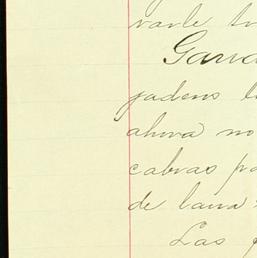 varle
Gana
ahora no
cabras pa
de lana
Las